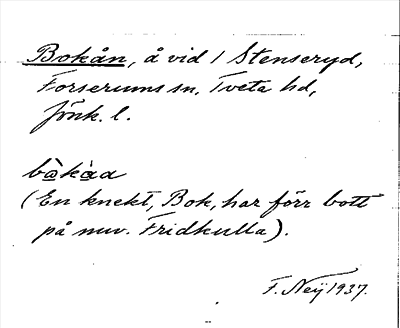 Bokån, å vid 1 Stenseryd,
Forserums sn, Tveta hd,
Jönk. l.
bòkàa
(En knekt, Bok, har förr bott
på nuv. Fridkulla).
F. Neÿ 1937.